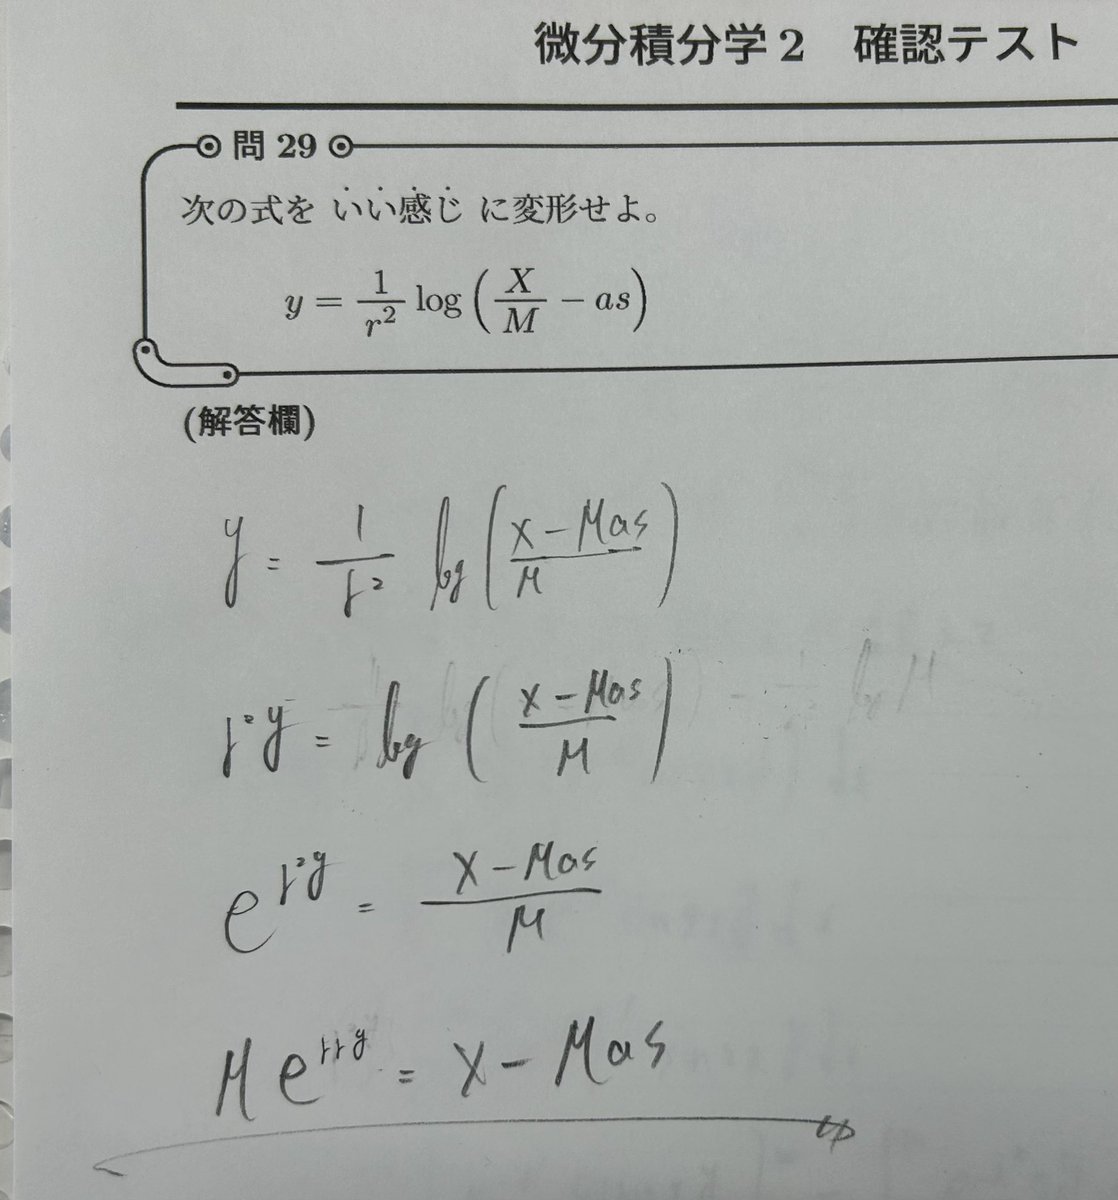 微分積分学2 確認テスト
問 29
次の式を いい感じ に変形せよ。
y = 1/r² log (X/M − as)
(解答欄)
y = 1/r² log (x − Mas / M)
r²y = log (x − Mas / M)
e^{r²y} = x − Mas / M
M e^{rry} = x − Mas